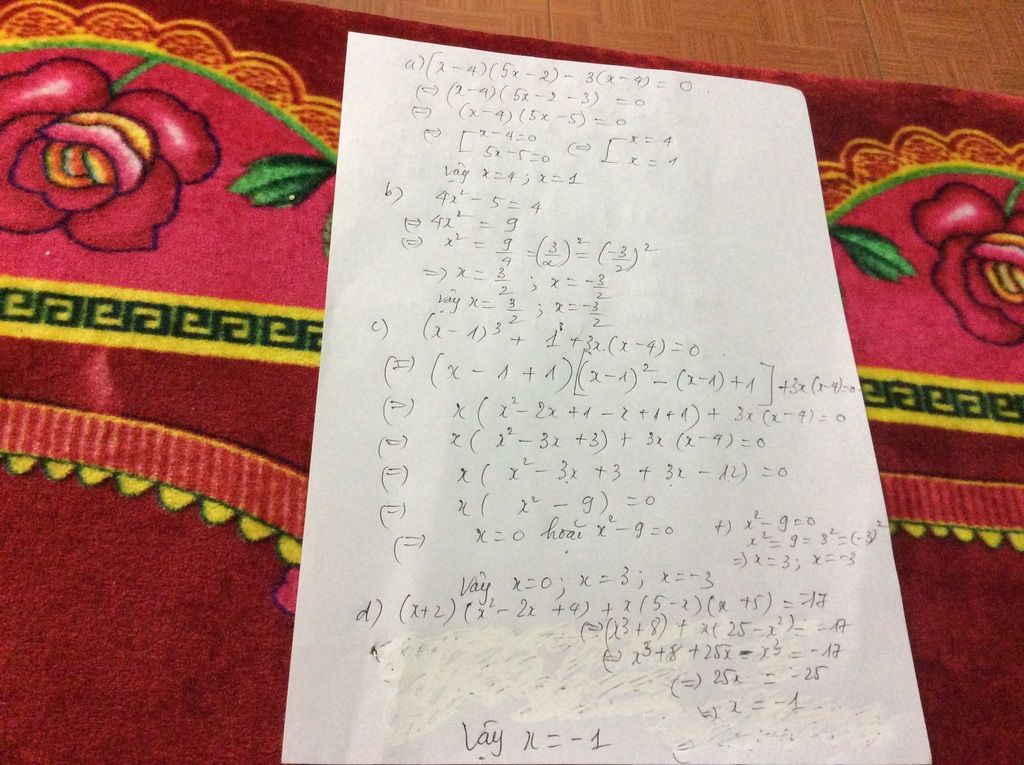 a) (x-4)(5x-2) - 3(x-4) = 0.
(=) (x-4)(5x-2-3) = 0
(=) (x-4)(5x-5) = 0
(=) [x-4=0 (=) [x = 4
5x-5=0 x = 1
Vậy x=4 ; x=1
b) 4x² - 5 = 4
(=) 4x² = 9
(=) x² = 9/4 = (3/2)² = (-3/2)²
=) x = 3/2 ; x = -3/2
Vậy x = 3/2 ; x = -3/2
c) (x-1)³ + 1³ + 3x.(x-4) = 0
(=) (x-1+1)[(x-1)² - (x-1) + 1] + 3x(x-4)=0.
(=) x(x² - 2x + 1 - x + 1 + 1) + 3x(x-4) = 0
(=) x(x² - 3x + 3) + 3x(x-4) = 0
(=) x(x² - 3x + 3 + 3x - 12) = 0
(=) x(x² - 9) = 0
(=) x = 0 hoặc x² - 9 = 0 +) x² - 9 = 0
x² = 9 = 3² = (-3)²
=) x = 3 ; x = -3
Vậy x=0 ; x = 3 ; x = -3
d) (x+2)(x² - 2x + 4) + x(5-x)(x+5) = -17
(=) (x³+8) + x(25-x²) = -17
(=) x³ + 8 + 25x - x³ = -17
(=) 25x = -25
=) x = -1
Vậy x = -1